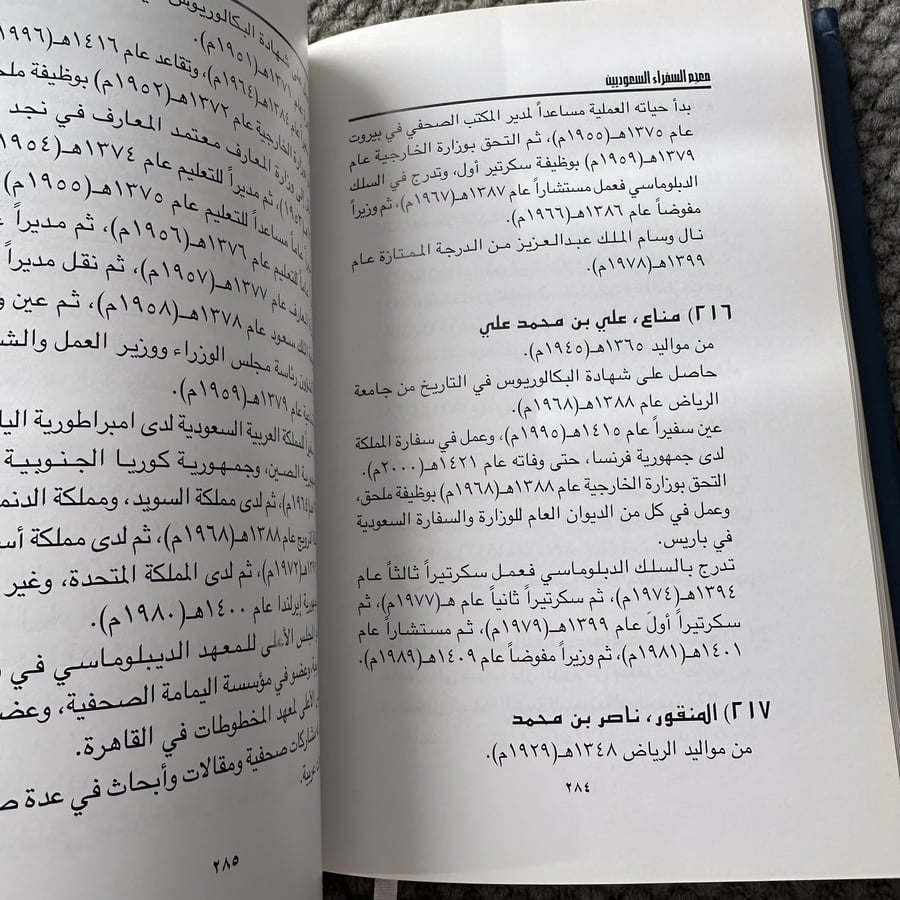 معجم السفراء السعوديين
بدأ حياته العملية مساعداً لمدير المكتب الصحفي في بيروت
عام ١٣٧٥هـ(١٩٥٥م)، ثم التحق بوزارة الخارجية عام
١٣٧٩هـ(١٩٥٩م) بوظيفة سكرتير أول، وتدرج في السلك
الدبلوماسي فعمل مستشاراً عام ١٣٨٧هـ(١٩٦٧م)، ثم وزيراً
مفوضاً عام ١٣٨٦هـ(١٩٦٦م).
نال وسام الملك عبدالعزيز من الدرجة الممتازة عام
١٣٩٩هـ(١٩٧٨م).
٢١٦) مناع، علي بن محمد علي
من مواليد ١٣٦٥هـ(١٩٤٥م).
حاصل على شهادة البكالوريوس في التاريخ من جامعة
الرياض عام ١٣٨٨هـ(١٩٦٨م).
عين سفيراً عام ١٤١٥هـ(١٩٩٥م)، وعمل في سفارة المملكة
لدى جمهورية فرنسا، حتى وفاته عام ١٤٢١هـ(٢٠٠٠م).
التحق بوزارة الخارجية عام ١٣٨٨هـ(١٩٦٨م) بوظيفة ملحق،
وعمل في كل من الديوان العام للوزارة والسفارة السعودية
في باريس.
تدرج بالسلك الدبلوماسي فعمل سكرتيراً ثالثاً عام
١٣٩٤هـ(١٩٧٤م)، ثم سكرتيراً ثانياً عام هـ(١٩٧٧م)، ثم
سكرتيراً أولَ عام ١٣٩٩هـ(١٩٧٩م)، ثم مستشاراً عام
١٤٠١هـ(١٩٨١م)، ثم وزيراً مفوضاً عام ١٤٠٩هـ(١٩٨٩م).
٢١٧) المنقور، ناصر بن محمد
من مواليد الرياض ١٣٤٨هـ(١٩٢٩م).
٢٨٤
شهادة البكالوريوس
١٣٧١هـ(١٩٥١م).
١٣٨٤هـ(١٩٦٤م)، وتقاعد عام ١٤١٦هـ(١٩٩٦
الخارجية عام ١٣٧٢هـ(١٩٥٢م) بوظيفة ملحق
وزارة المعارف معتمد المعارف في نجد
ثم مديراً للتعليم عام ١٣٧٤هـ(١٩٥٤
مساعداً للتعليم عام ١٣٧٥هـ(١٩٥٥م)
التعليم عام ١٣٧٦هـ(١٩٥٦م)، ثم مديراً
المعارف عام ١٣٧٧هـ(١٩٥٧م)، ثم نقل مديراً
الملك سعود عام ١٣٧٨هـ(١٩٥٨م)، ثم عين
رئاسة مجلس الوزراء ووزير العمل
عام ١٣٧٩هـ(١٩٥٩م).
للمملكة العربية السعودية لدى امبراطورية
الصين، وجمهورية كوريا الجنوبية
ثم لدى مملكة السويد، ومملكة
النرويج عام ١٣٨٨هـ(١٩٦٨م)، ثم لدى مملكة
ثم لدى المملكة المتحدة، وغير
إيرلندا عام ١٤٠٠هـ(١٩٨٠م).
المجلس الأعلى للمعهد الديبلوماسي في
وعضو في مؤسسة اليمامة الصحفية،
لمعهد المخطوطات في القاهرة.
مشاركات صحفية ومقالات وأبحاث في عدة
عربية.
٢٨٥